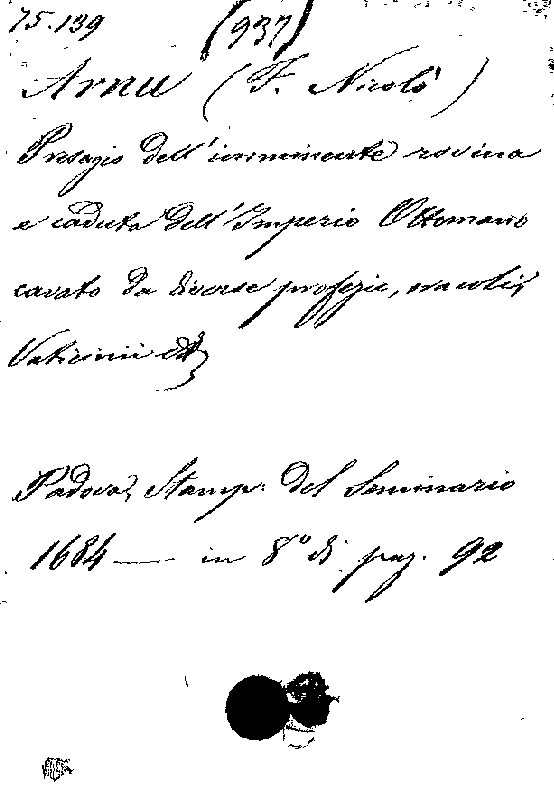 75.139 (937)
Arnu (F. Nicolò)
Presagio dell'imminente rovina
e caduta dell'Imperio Ottomano
cavato da diverse profezie, oracoli,
Vaticinii
Padova, Stamp. del Seminario
1684 — in 8° di pag. 92